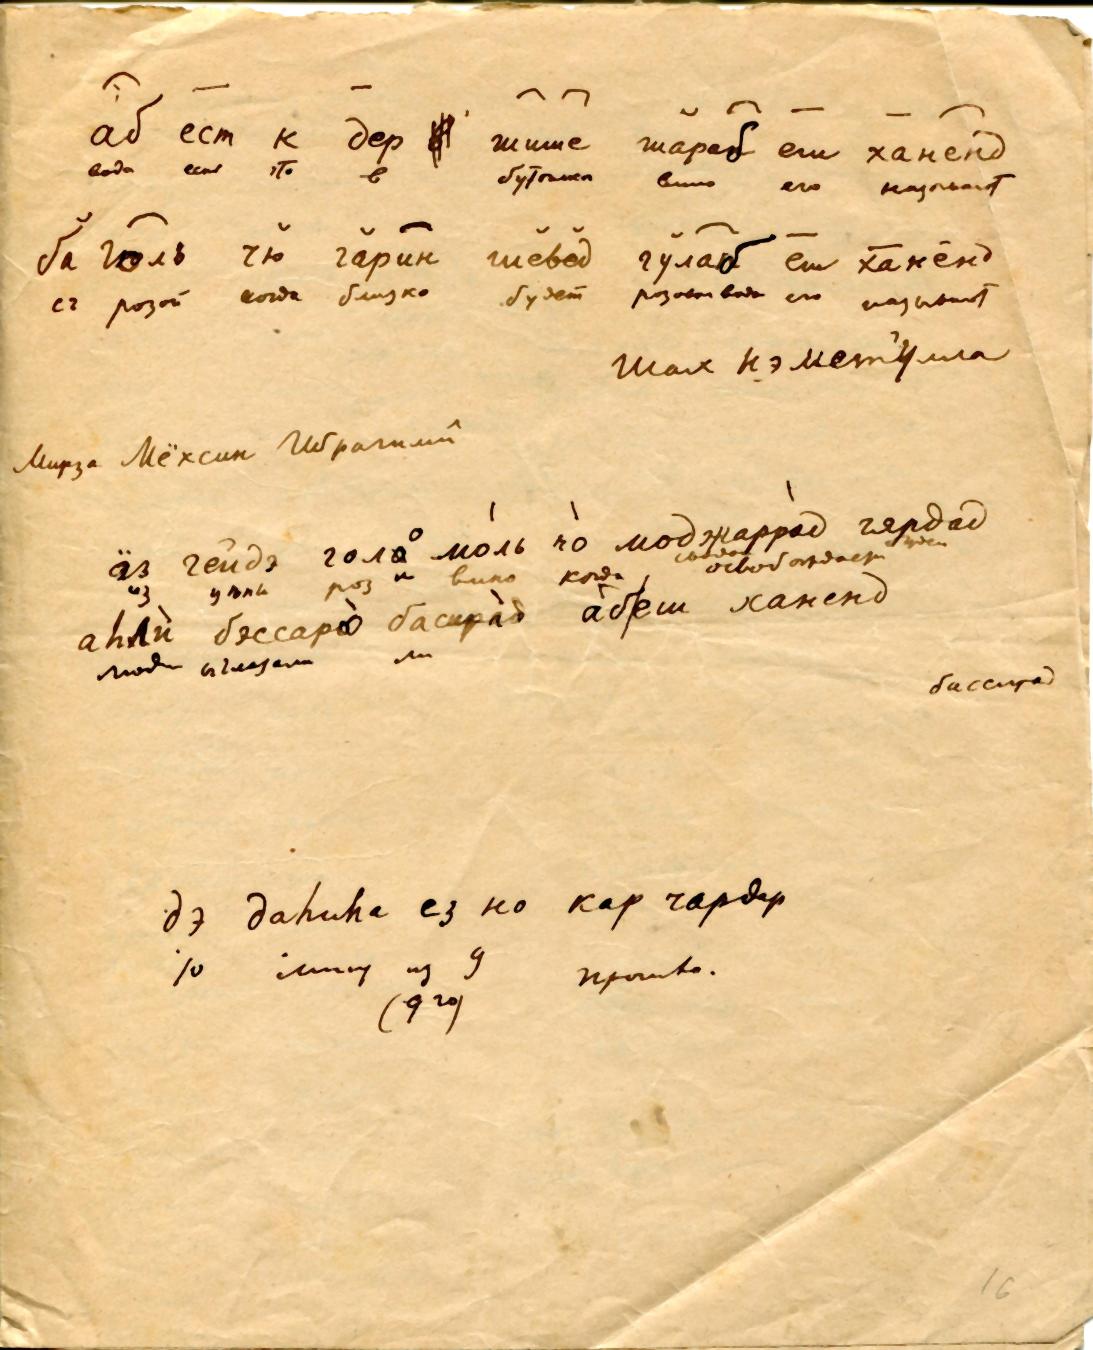 аб ест к дер шише шараб еш ханенд
вода есть что в бутылка вино его называют
ба голь чю гарин шевед гулаб еш ханенд
с розой когда близко будет розовая вода его называют
Шах Нэмет'улла
Мирза Мёхсин Ибрагими
äз гейдэ гола о моль чо моджаррад гярдад
из роз и вино когда освобождает
аhли бэссаро басират абеш ханенд
люди ли
бассират
дэ даhиhа ез но кар чардер
10 из 9
(9 го)
16